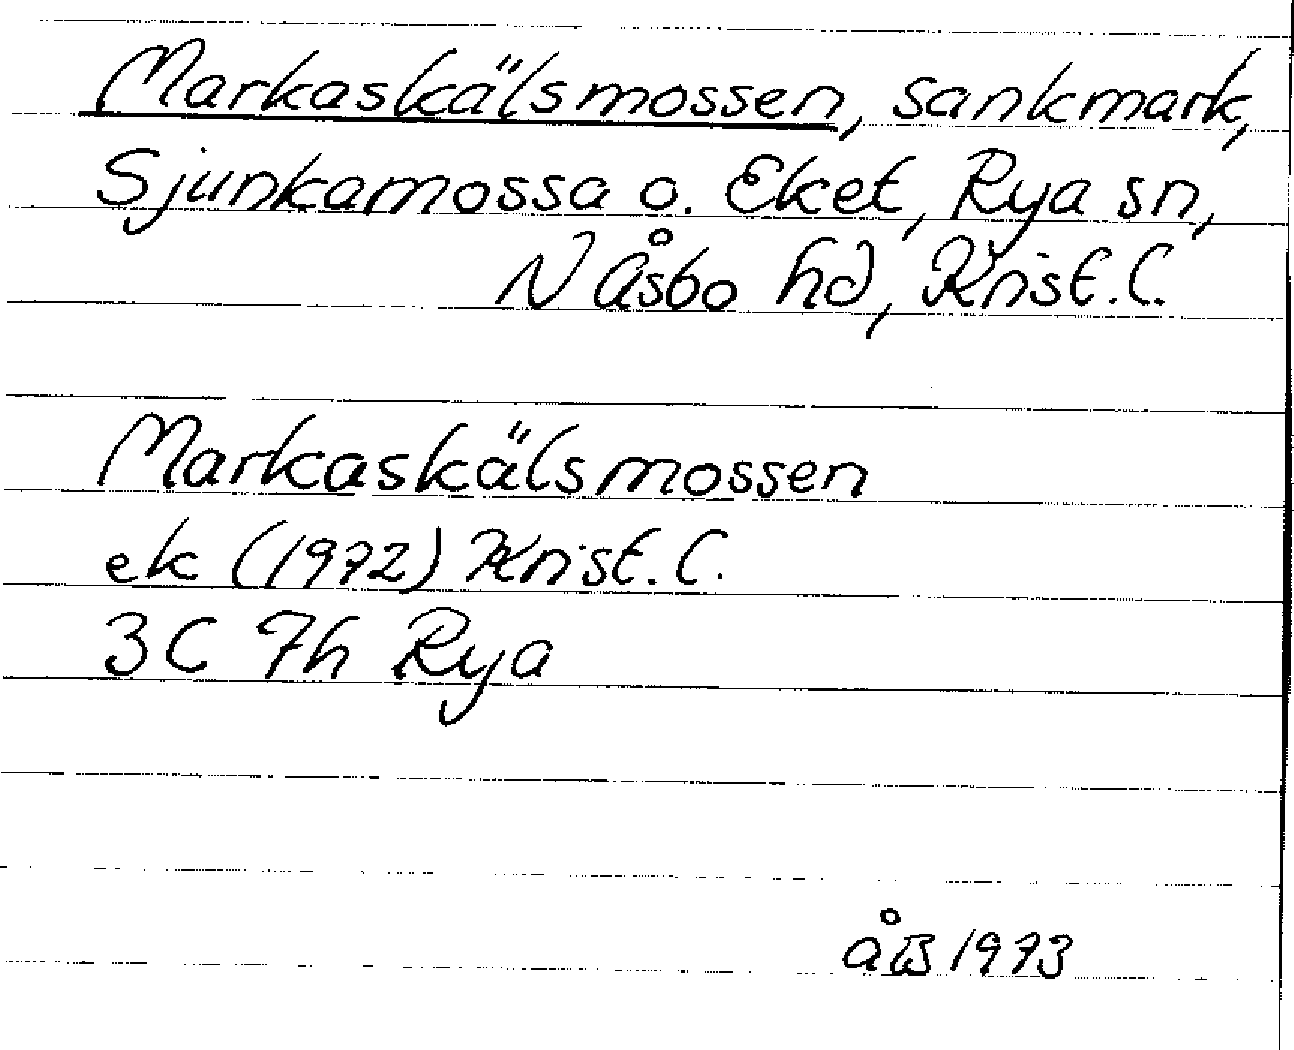 Markaskälsmossen, sankmark,
Sjunkamossa o. Eket, Rya sn,
N Åsbo hd, Krist. l.
Markaskälsmossen
ek (1972) Krist. l.
3C 7h Rya
åB 1973